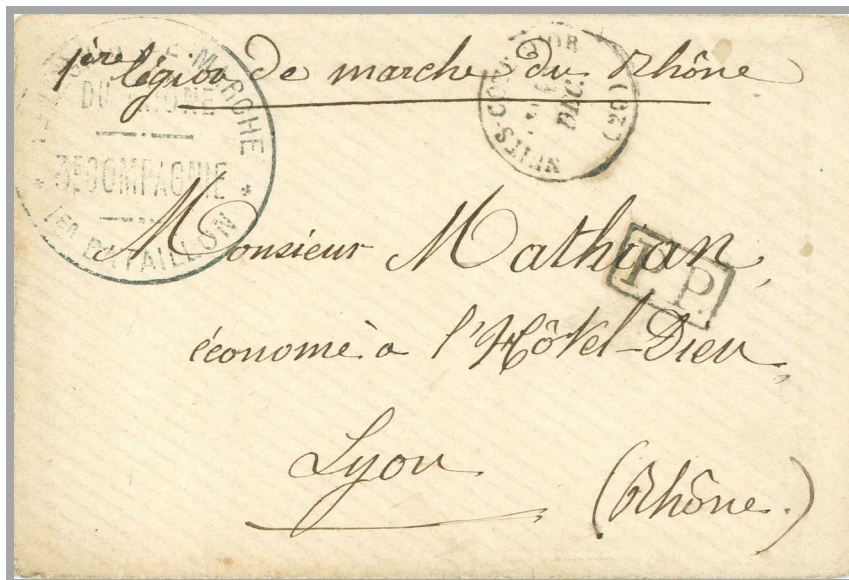 1ère légion de marche du Rhône
LÉGION DE MARCHE
DU RHÔNE
3E COMPAGNIE
1ER BATAILLON
DEC.
(20)
P.P.
Monsieur Mathian,
économe à l'Hôtel-Dieu,
Lyon
(Rhône.)